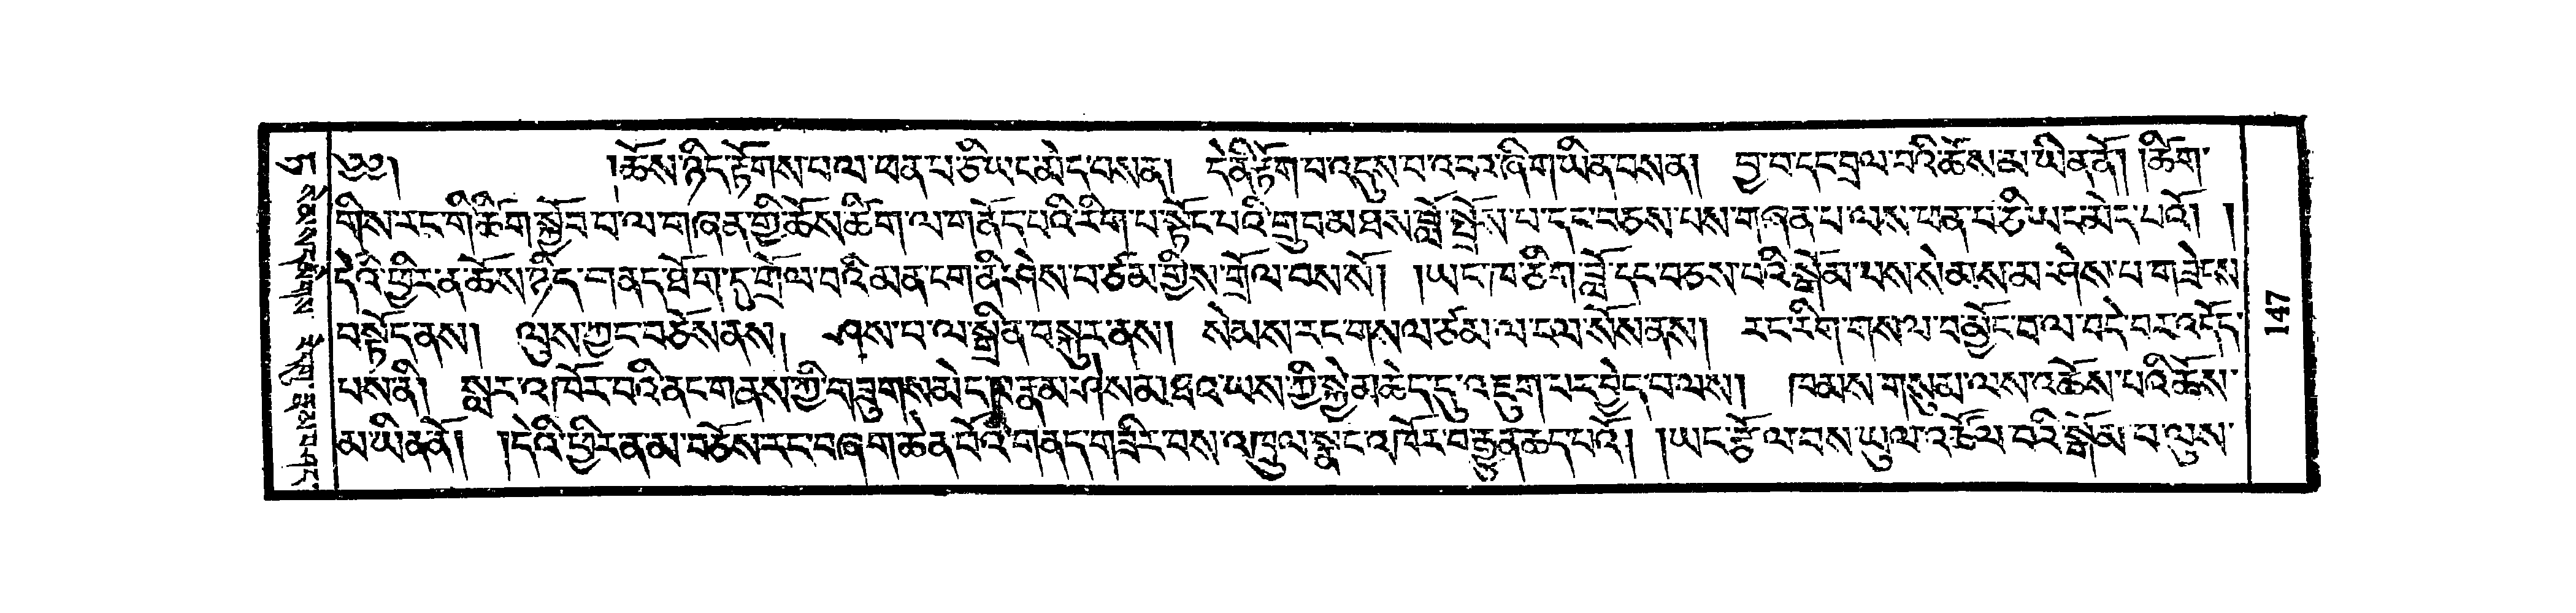 ༄༅། །ཆོས་ཉིད་རྟོགས་པ་ལ་ཕན་པ་ཅི་ཡང་མེད་པས་ན། དེ་ནི་རྟོག་པ་འདུས་པ་འབའ་ཞིག་ཡིན་པས་ན། བྱ་བ་དང་བྲལ་བའི་ཆོས་མ་ཡིན་ནོ། །ཚིག་
གིས་རང་གི་ཚིག་སྐྱོབ་པ་ལ་གཞན་གྱི་ཆོས་ཚིག་ལ་གནོད་པའི་རིག་པ་སྟོང་པའི་གྲུབ་མཐས་བློ་སྤྲོས་པ་དང་བཅས་པས་གཞན་པ་ལས་ཕན་པ་ཅི་ཡང་མེད་པའོ། །
དེའི་ཕྱིར་ན་ཆོས་ཉིད་གནད་ཐོག་ཏུ་གྲོལ་བའི་མན་ངག་ནི་ཤེས་པ་ཙམ་གྱིས་གྲོལ་བས་སོ། །ཡང་ཁ་ཅིག་བློ་དང་བཅས་པའི་སྒོམ་པས་སེམས་མ་ཤེས་པ་གཟེངས་
བསྟོད་ནས། ལུས་ཀྱང་བཅོས་ནས། ཤས་པ་ལ་སྒྲིན་བསྐུར་ནས། སེམས་རང་གསལ་ཙམ་ལ་ངལ་སོས་ནས། རང་རིག་གསལ་བ་མྱོང་བ་ལ་བདེ་བར་འདོད་
པས་ནི། སླར་འཁོར་བའི་ནང་གནས་ཀྱི་གཟུགས་མེད་རྣམ་ཤེས་མཐའ་ཡས་ཀྱི་སྐྱེ་མཆེད་དུ་འཇུག་པར་བྱེད་པ་ལས། ཁམས་གསུམ་ལས་འཆོས་པའི་ཆོས་
མ་ཡིན་ནོ། །དེའི་ཕྱིར་ན་མ་བཅོས་རང་བཞག་ཆེན་པོའི་གནད་གཟིར་བས་འཁྲུལ་སྣང་འཁོར་བ་རྒྱུན་ཆད་པའོ། །ཡང་རྩོལ་བས་ཡུལ་འཚོལ་བའི་སྒོམ་པ་ལུས་
741